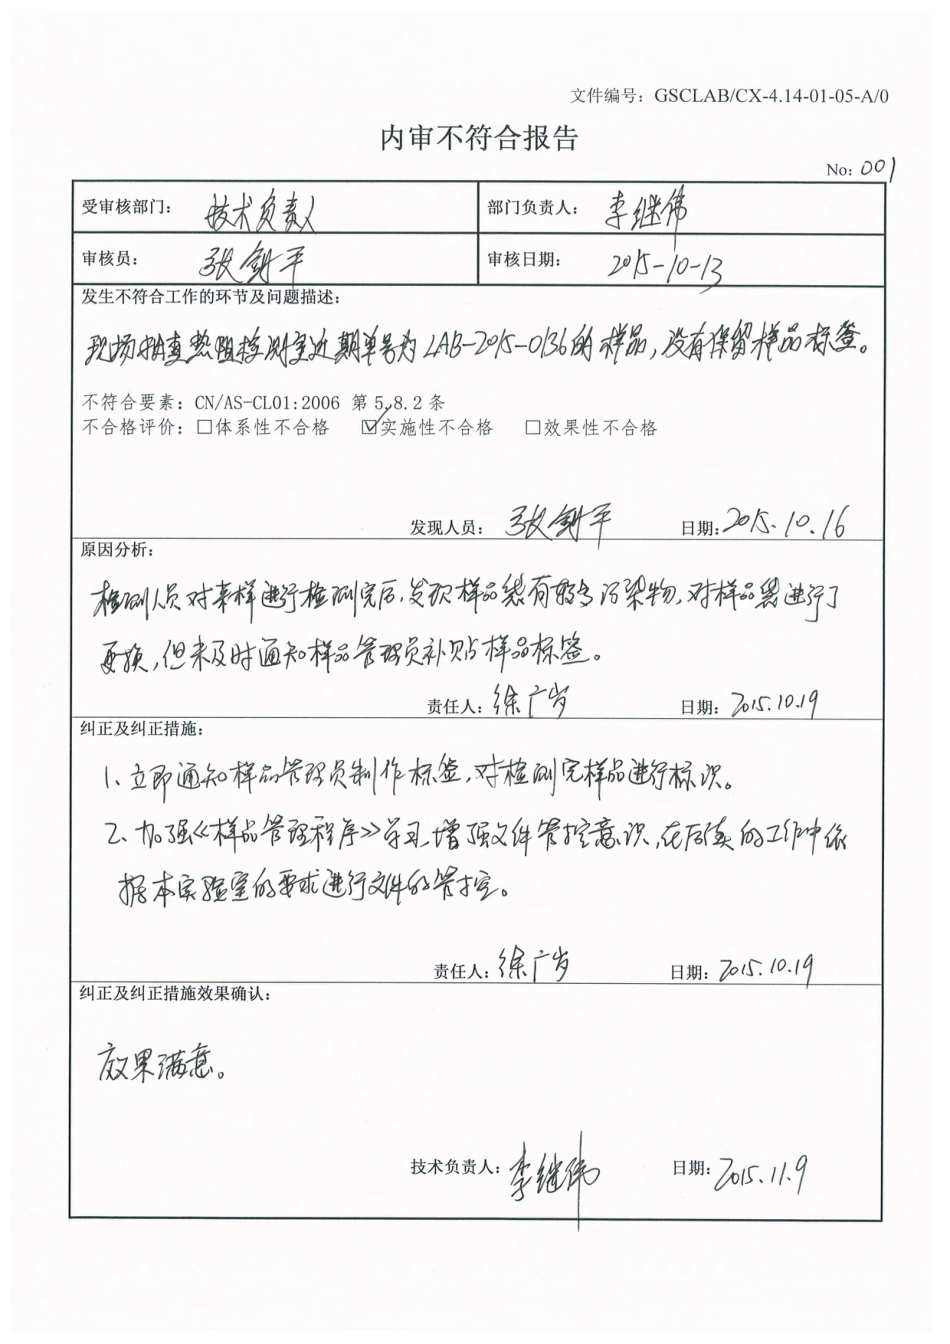 文件编号：GSCLAB/CX-4.14-01-05-A/0
内审不符合报告
No: 001
受审核部门： 技术负责人 部门负责人： 李继伟
审核员： 张剑平 审核日期： 2015-10-13
发生不符合工作的环节及问题描述：
现场抽查热阻检测室近期单号为LAB-2015-0136的样品，没有保留样品标签。
不符合要素：CN/AS-CL01:2006 第 5.8.2 条
不合格评价：□体系性不合格 ☑实施性不合格 □效果性不合格
发现人员： 张剑平 日期：2015.10.16
原因分析：
检测人员对来样进行检测完后，发现样品袋有较多污染物，对样品袋进行了
更换，但未及时通知样品管理员补贴样品标签。
责任人：徐广岁 日期：2015.10.19
纠正及纠正措施：
1、立即通知样品管理员制作标签，对检测完样品进行标识。
2、加强《样品管理程序》学习，增强文件管控意识，在后续的工作中依
据本实验室的要求进行文件的管控。
责任人：徐广岁 日期：2015.10.19
纠正及纠正措施效果确认：
效果满意。
技术负责人：李继伟 日期：2015.11.9